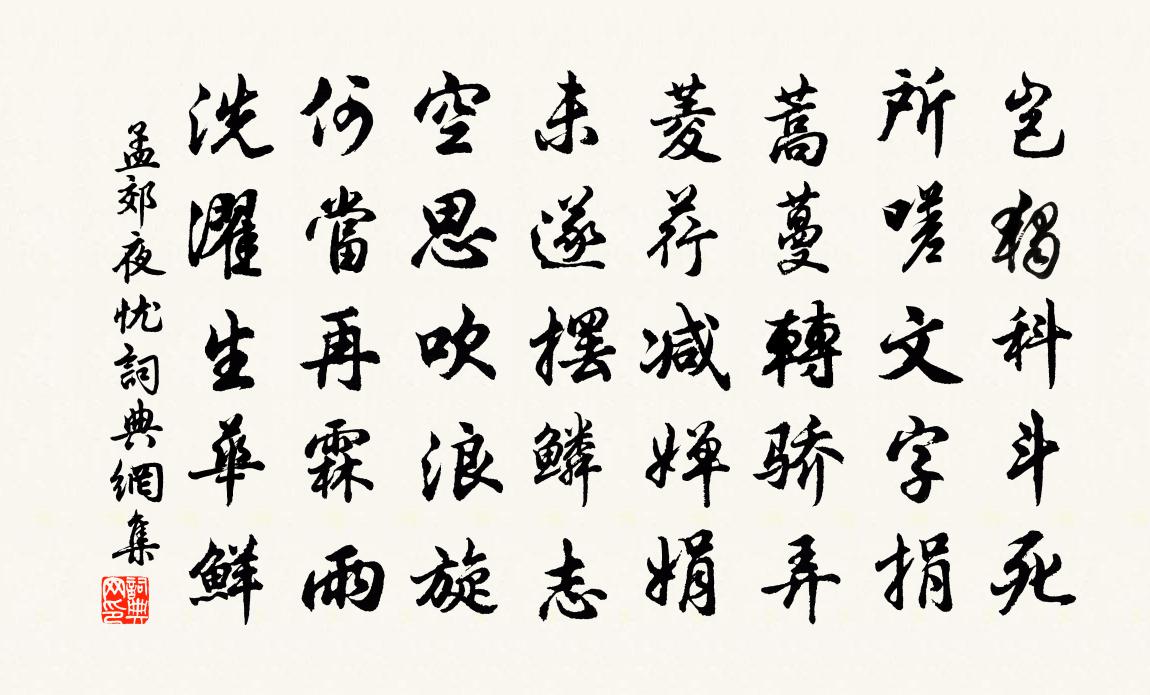 豈獨科斗死
所嗟文字捐
蒿蔓轉骄弄
菱荇減婵娟
未遂擺鳞志
空思吹浪旋
何當再霖雨
洗濯生華鮮
孟郊夜忧詞典網集
詞典網印